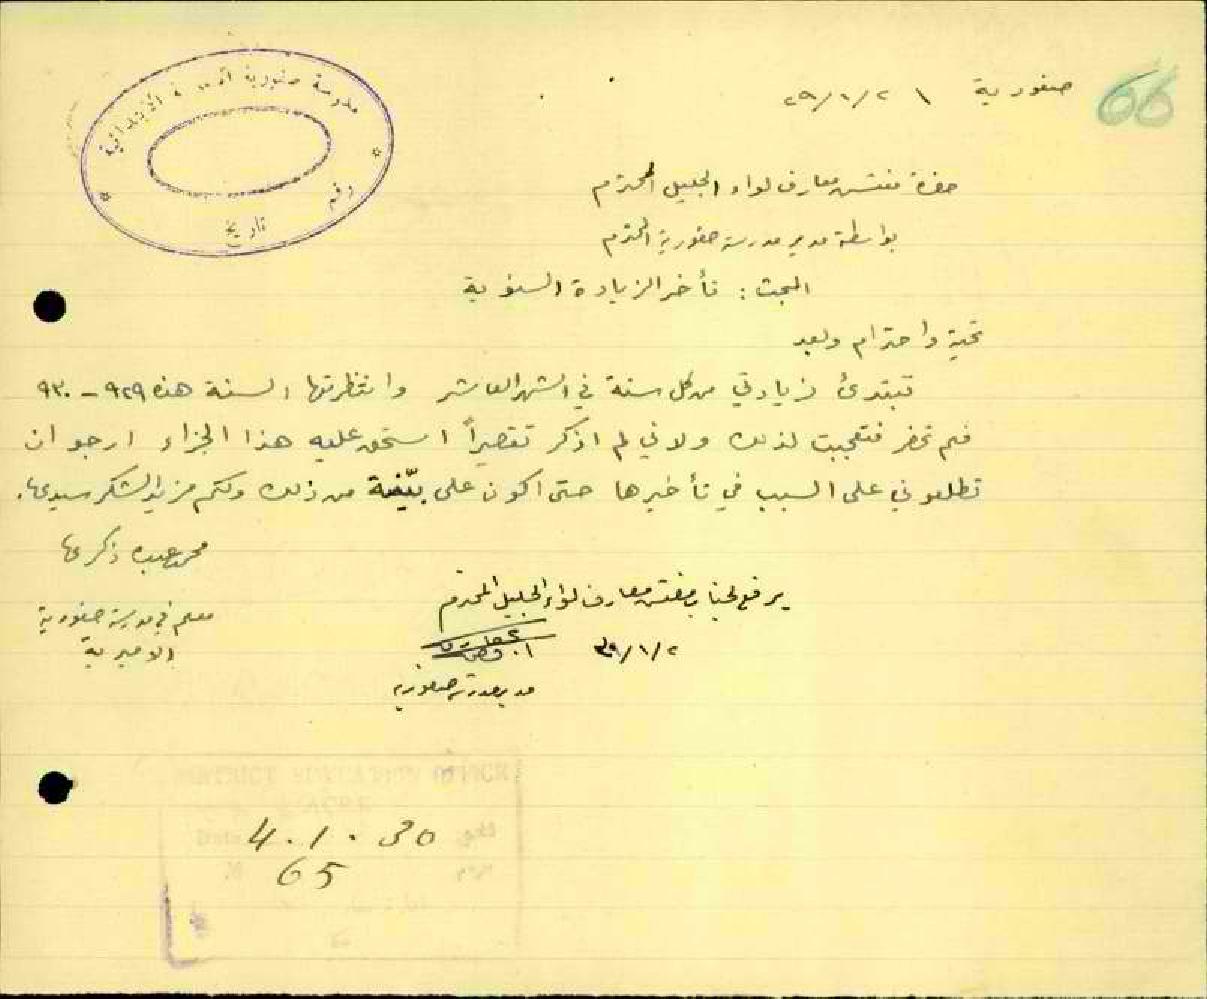 66
صفورية ٢٩/١/٢
مدرسة صفورية الابتدائية
رقم
تاريخ
حضرة مفتش معارف لواء الجليل المحترم
بواسطة مدير مدرسة صفورية المحترم
البحث : تأخر الزيادة السنوية
تحية واحترام وبعد
تبتدئ زيادتي من كل سنة في الشهر العاشر وانتظرتها السنة هذه ٩٢٩ – ٩٣٠
فلم تحضر فتعجبت لذلك ولاني لم اذكر تقصيراً استحق عليه هذا الجزاء ارجو ان
تطلعوني على السبب في تأخيرها حتى اكون على بيّنة من ذلك ولكم مزيد الشكر سيدي.
محمد عبده زكريا
معلم في مدرسة صفورية
الاميرية
يرفع لجناب مفتش معارف لواء الجليل المحترم
٢/١/
مدير مدرسة صفورية
DISTRICT EDUCATION OFFICE
Date
4.1.30
65